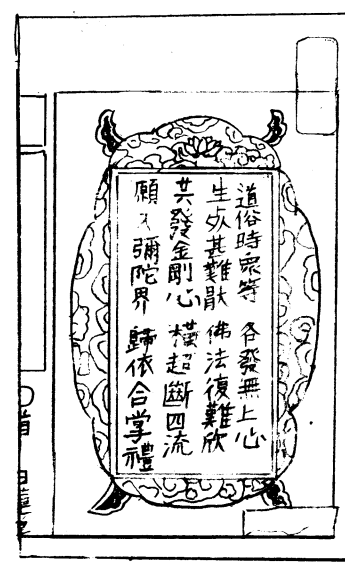 道俗時衆等 各發無上心
生死甚難厭 佛法復難欣
共發金剛心 橫超斷四流
願入彌陀界 歸依合掌禮